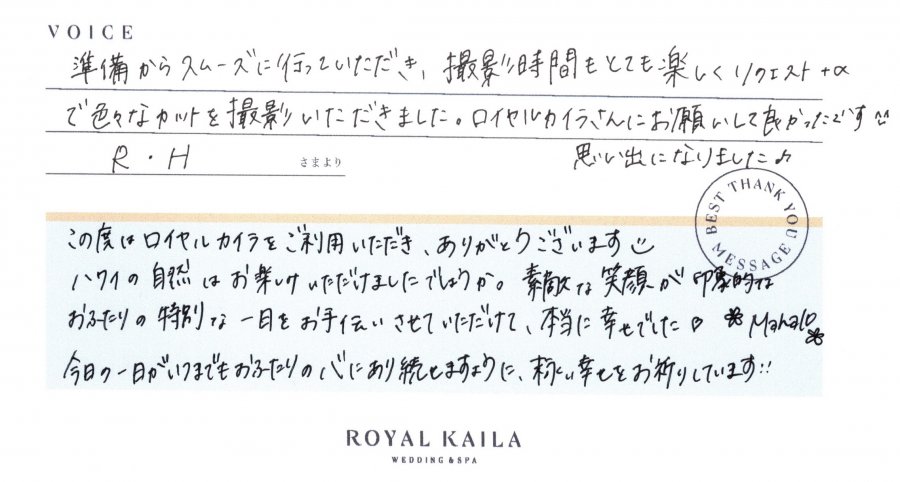 VOICE
準備からスムーズに行っていただき、撮影時間もとても楽しくリクエスト+α
で色々なカットを撮影いただきました。ロイヤルカイラさんにお願いして良かったです^^
R・H さまより 思い出になりました♪
BEST THANK YOU MESSAGE
この度はロイヤルカイラをご利用いただき、ありがとうございます☺
ハワイの自然はお楽しみいただけましたでしょうか。素敵な笑顔が印象的な
おふたりの特別な一日をお手伝いさせていただけて、本当に幸せでした♡ Mahalo
今日の一日がいつまでもおふたりの心にあり続けますように、末永い幸せをお祈りしています!!
ROYAL KAILA
WEDDING & SPA